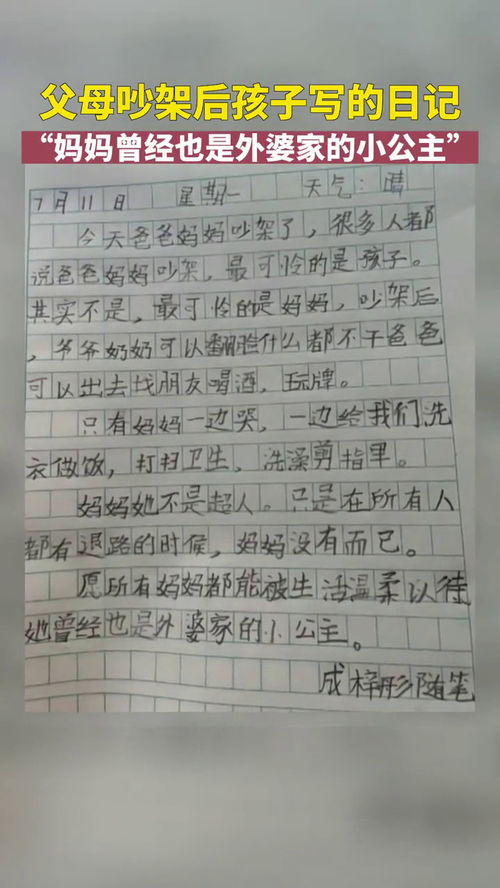 父母吵架后孩子写的日记
“妈妈曾经也是外婆家的小公主”
7月11日 星期一 天气:晴
今天爸爸妈妈吵架了,很多人都
说爸爸妈妈吵架,最可怜的是孩子。
其实不是,最可怜的是妈妈,吵架后
,爷爷奶奶可以翻脸什么都不干爸爸
可以出去找朋友喝酒,玩牌。
只有妈妈一边哭,一边给我们洗
衣做饭,打扫卫生,洗澡剪指甲。
妈妈她不是超人。只是在所有人
都有退路的时候,妈妈没有而已。
愿所有妈妈都能被生活温柔以待
她曾经也是外婆家的小公主。
成梓彤随笔